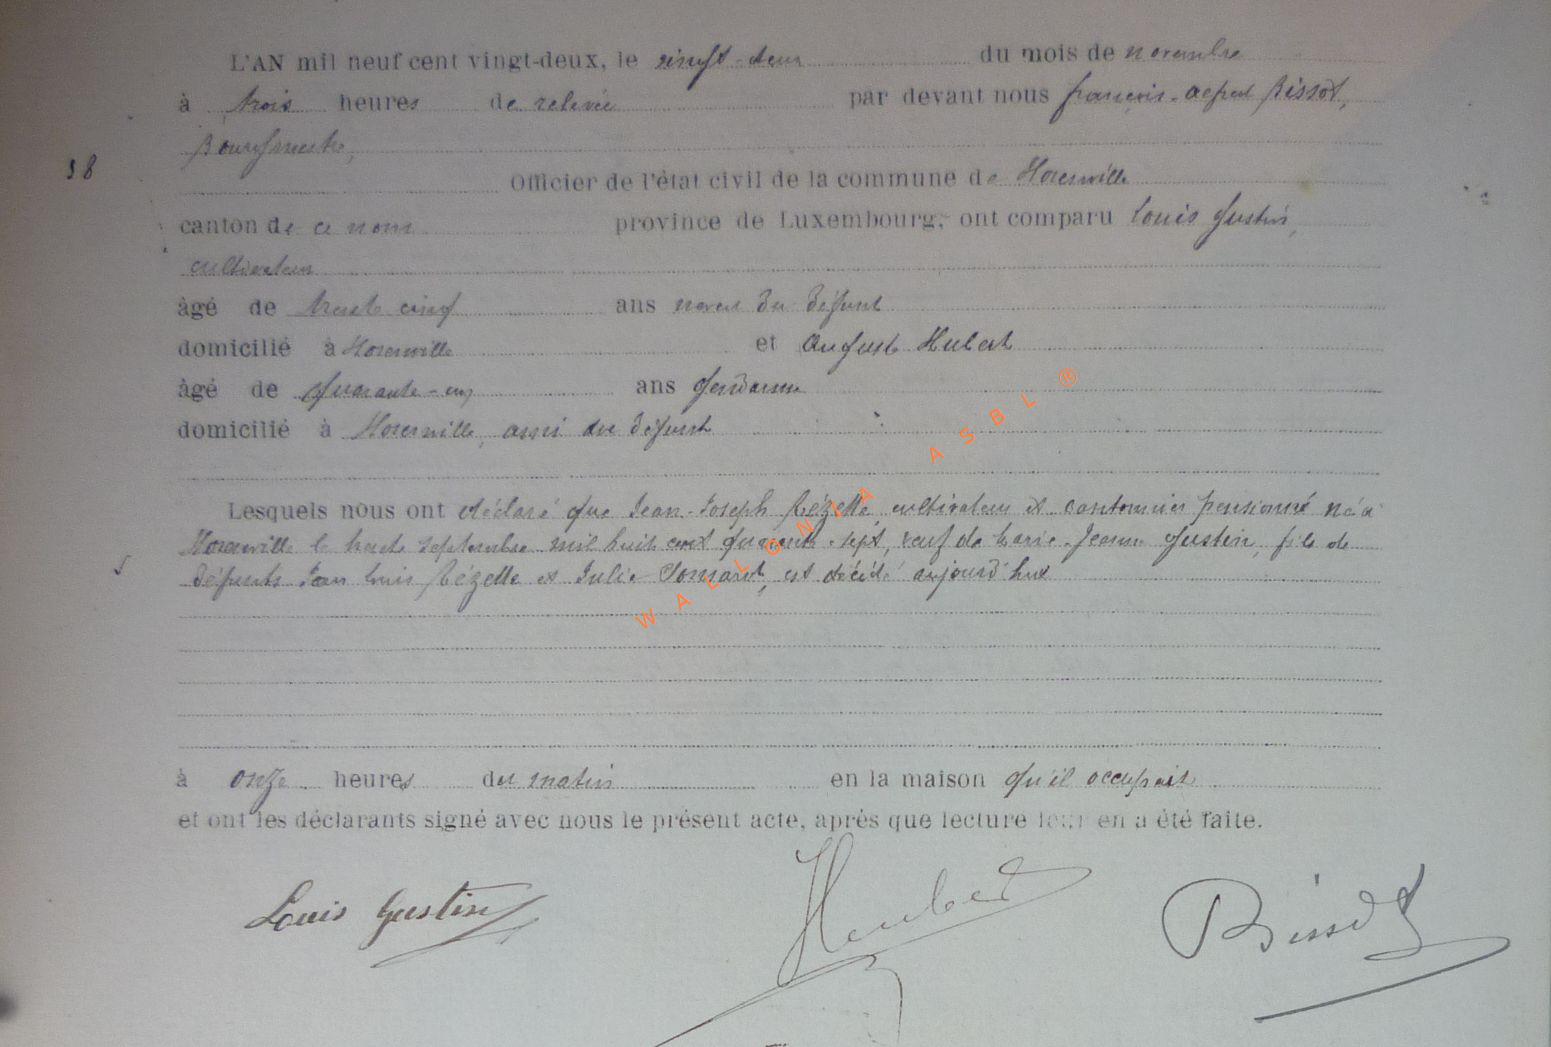 L'AN mil neuf cent vingt-deux, le vingt-deux du mois de novembre
à trois heures de relevée par devant nous françois-alfred Bissot,
Bourgmestre,
38
Officier de l'état civil de la commune de
canton de ce nom province de Luxembourg, ont comparu Louis Gustin,
cultivateur
âgé de trente cinq ans neveu du défunt
domicilié à et August Hubert
âgé de quarante-un ans gendarme
domicilié à ami du défunt
Lesquels nous ont déclaré que Jean-Joseph Rézette, cultivateur et cantonnier pensionné né à
le trente septembre mil huit cent quarante-sept, veuf de Marie-Jeanne Gustin, fils de
défunts Jean Louis Rézette et Julie est décédé aujourd'hui
à onze heures du matin en la maison qu'il occupait
et ont les déclarants signé avec nous le présent acte, après que lecture leur en a été faite.
Louis Gustin Hubert Bissot
WALLONIA ASBL ®